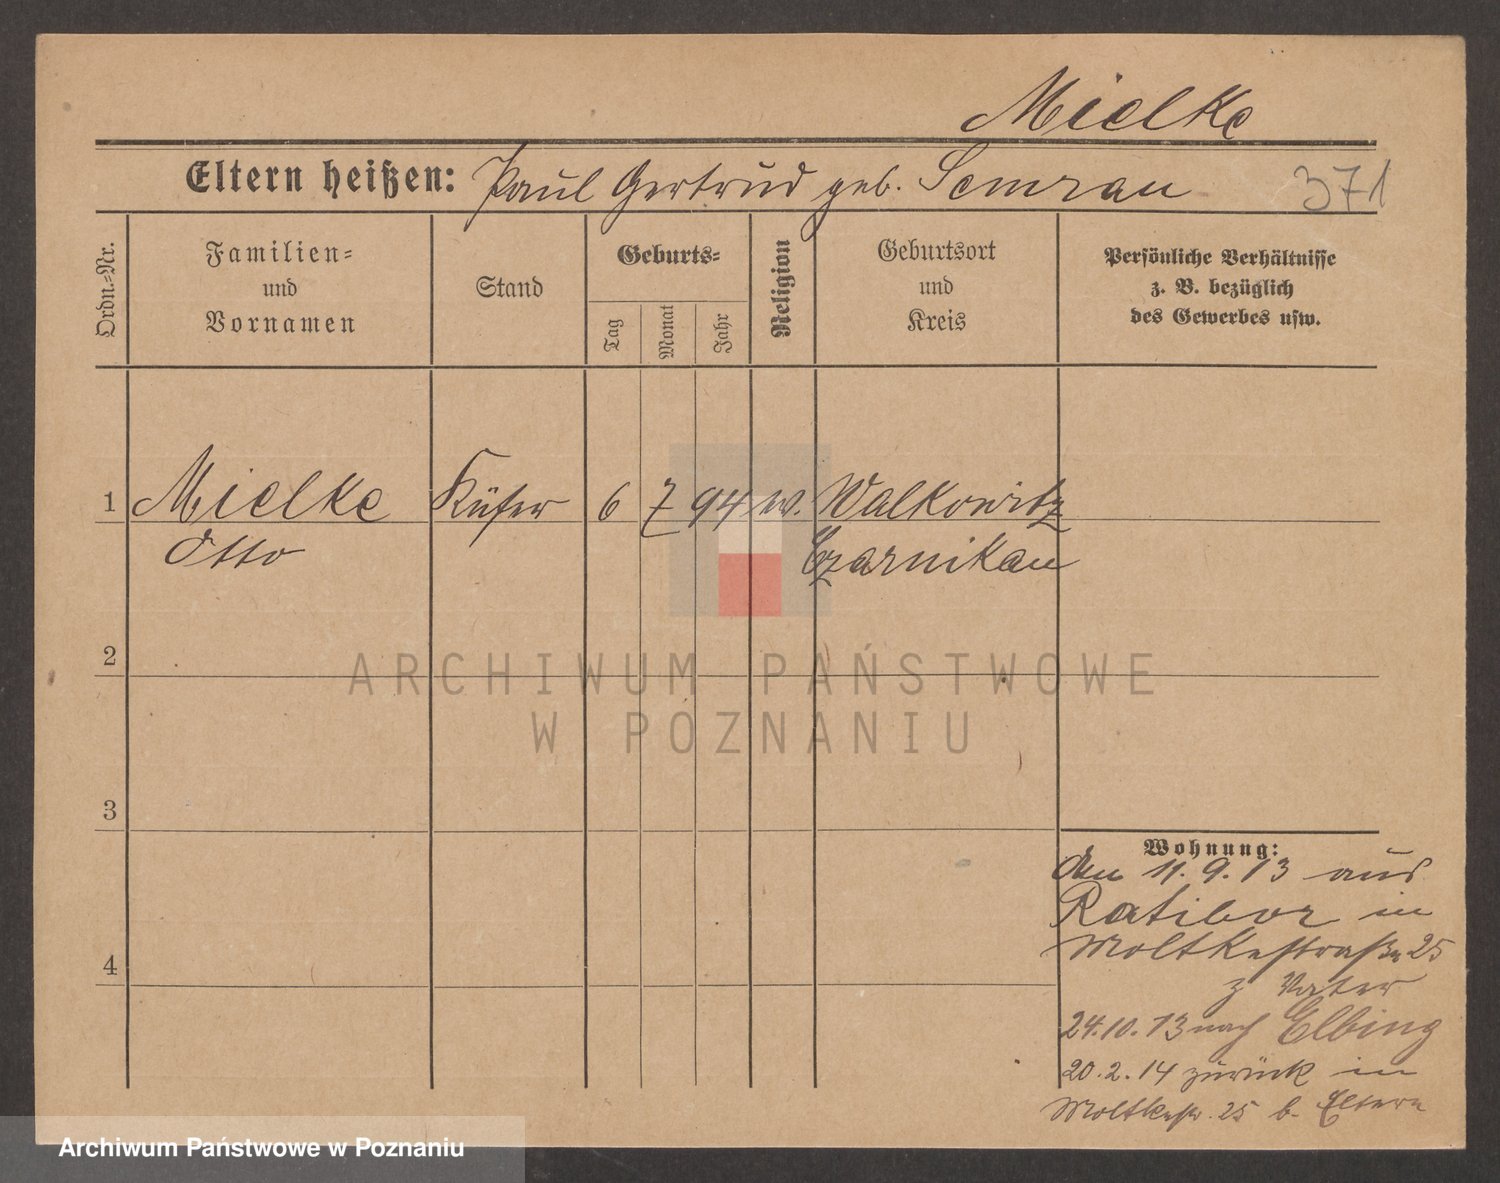 Mielke
Eltern heißen: Paul Gertrud geb. Semrau 371
Ordn.-Nr.
Familien-
und
Vornamen
Stand
Geburts-
Tag
Monat
Jahr
Religion
Geburtsort
und
Kreis
Persönliche Verhältnisse
z. B. bezüglich
des Gewerbes usw.
1 Mielke Küfer 6 7 94 ev. Walkowitz
Otto Czarnikau
2
3
4
ARCHIWUM PAŃSTWOWE
W POZNANIU
Wohnung:
Am 11.9.13 aus
Ratibor in
Moltkestraße 25
z Vater
24.10.13 nach Elbing
20.2.14 zurück in
Moltkestr. 25 b. Eltern
Archiwum Państwowe w Poznaniu